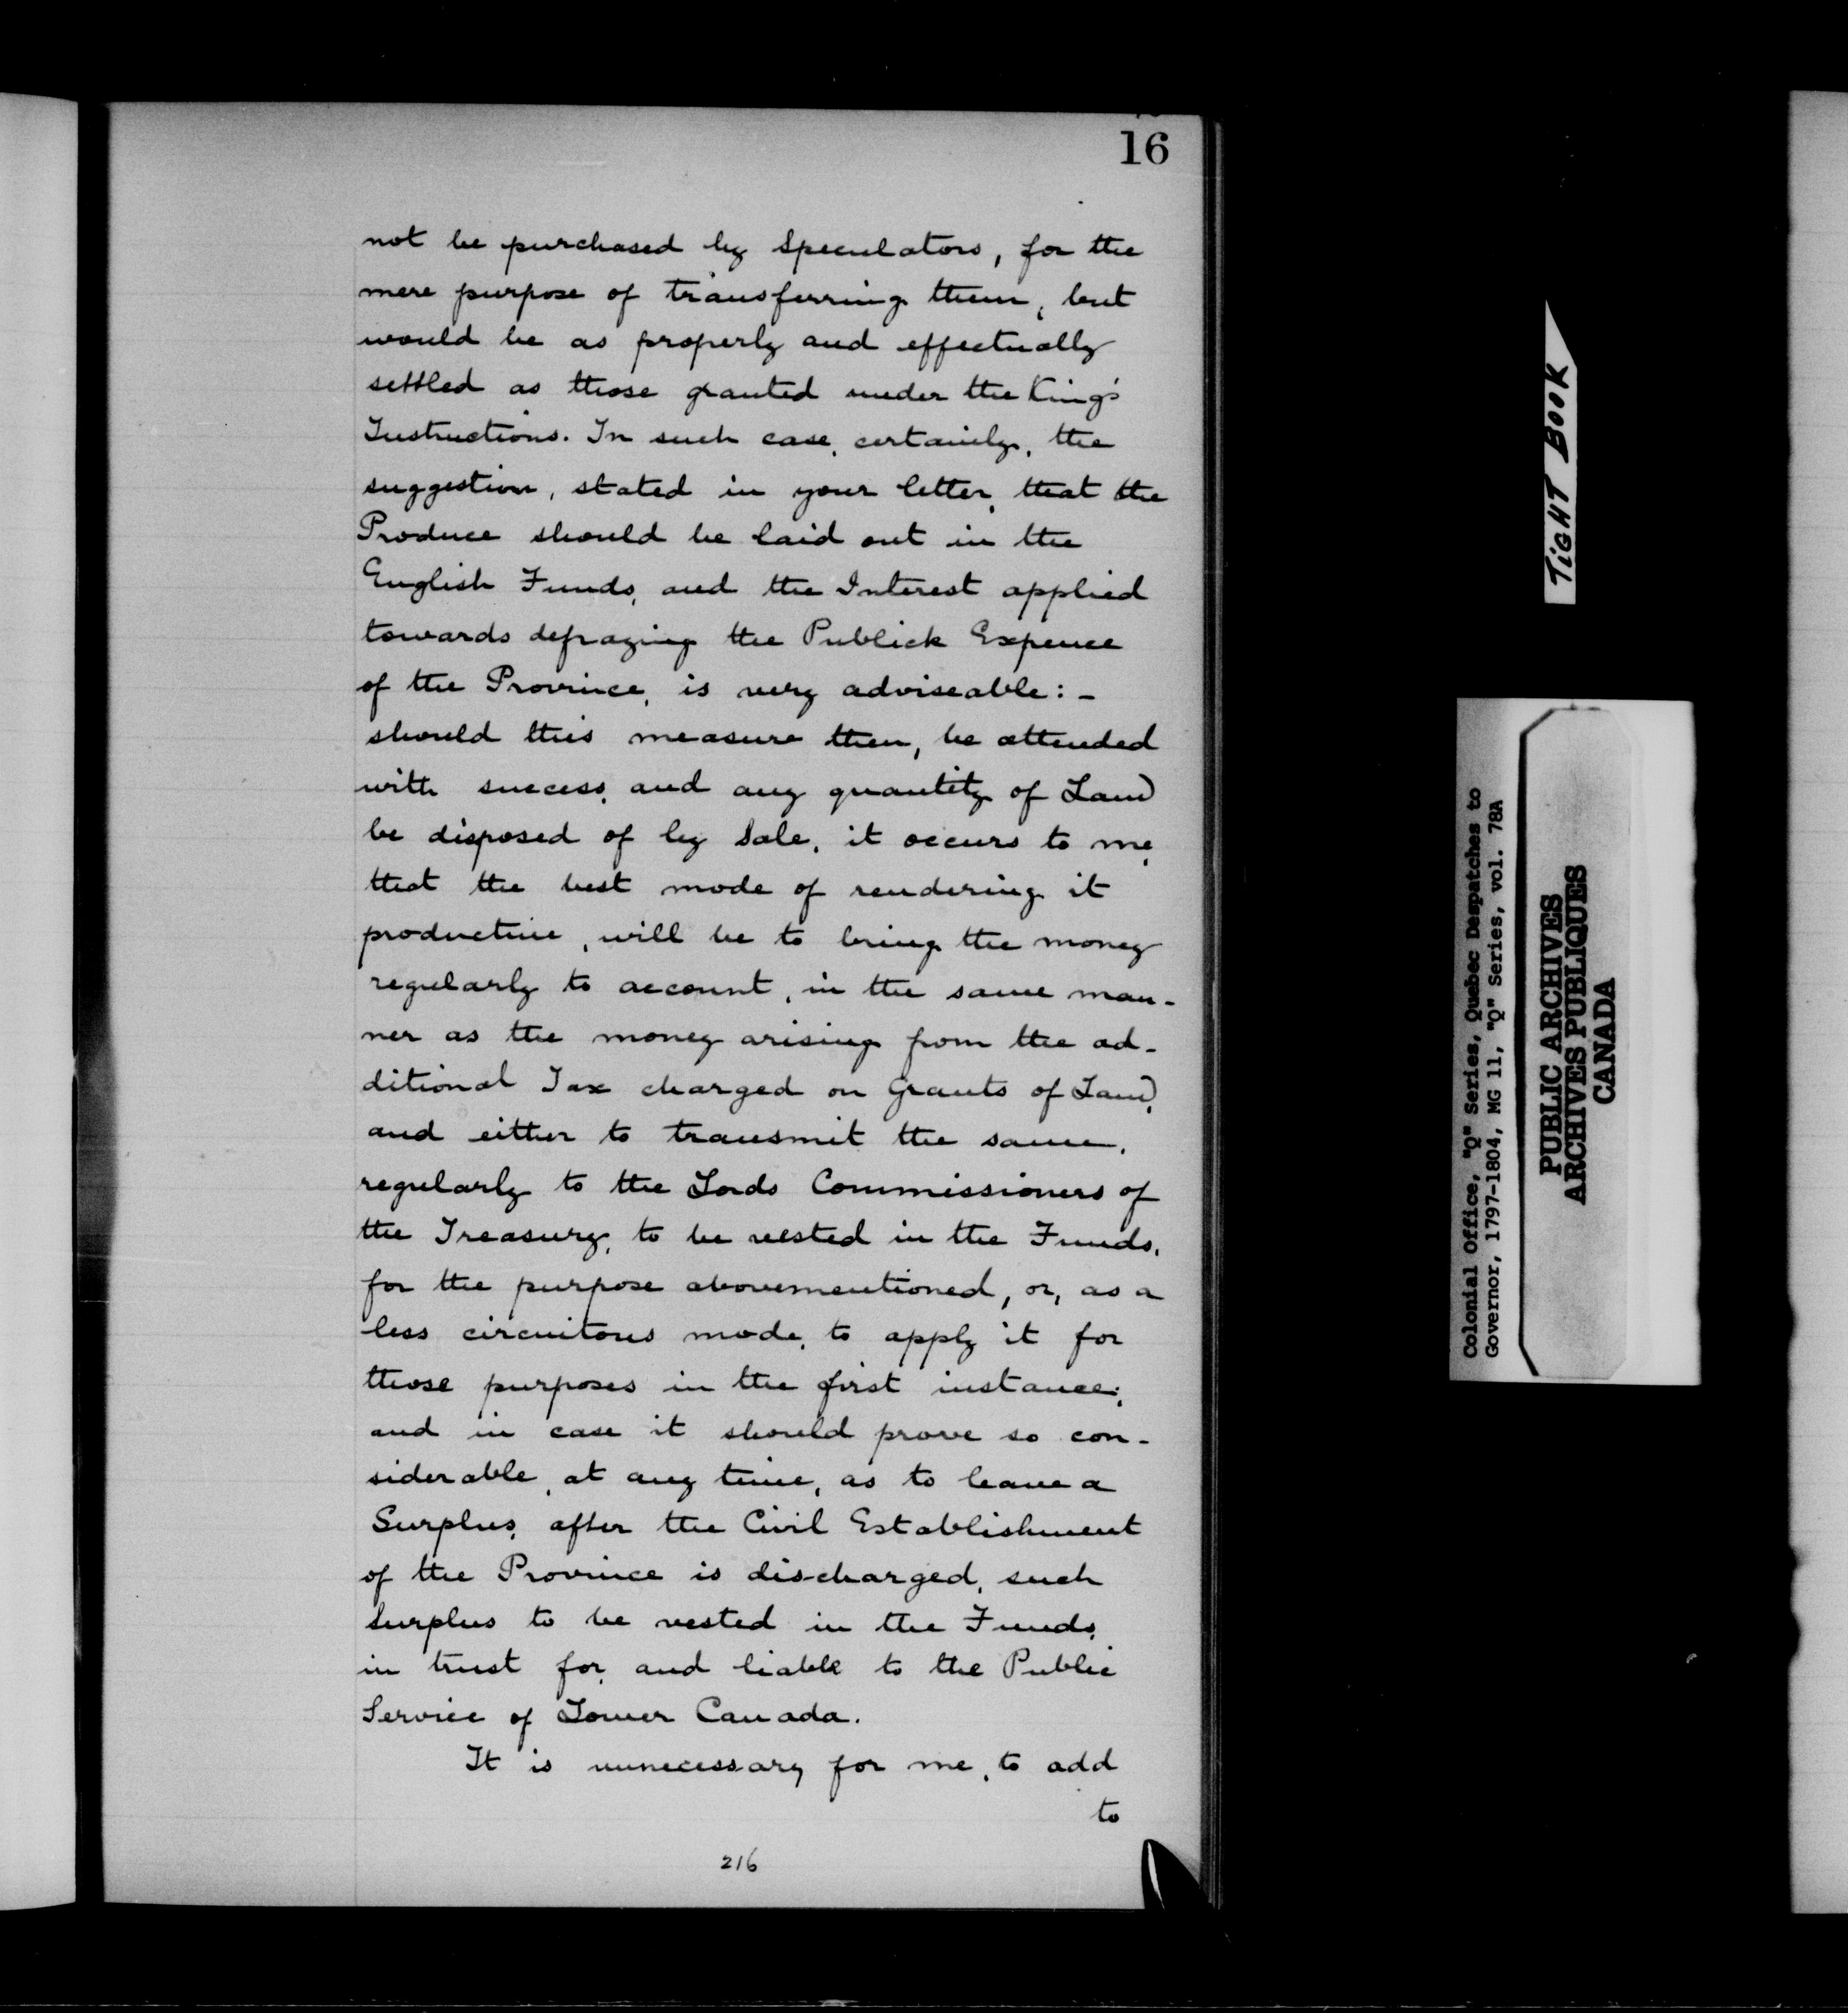 16
not be purchased by Speculators, for the
mere purpose of transferring them, but
would be as properly and effectually
settled as those granted under the King's
Instructions. In such case, certainly, the
suggestion, stated in your letter, that the
Produce should be laid out in the
English Funds, and the Interest applied
towards defraying the Publick Expence
of the Province, is very adviseable: -
should this measure then, be attended
with success, and any quantity of Land
be disposed of by Sale, it occurs to me,
that the best mode of rendering it
productive, will be to bring the money
regularly to account, in the same man-
ner as the money arising from the ad-
ditional Tax charged on Grants of Land,
and either to transmit the same,
regularly to the Lords Commissioners of
the Treasury, to be vested in the Funds,
for the purpose abovementioned, or, as a
less circuitous mode, to apply it for
those purposes in the first instance;
and in case it should prove so con-
siderable, at any time, as to leave a
Surplus, after the Civil Establishment
of the Province is discharged, such
Surplus to be vested in the Funds,
in trust for, and liable to the Public
Service of Lower Canada.
It is unnecessary for me, to add
to
216
TIGHT BOOK
Colonial Office, "Q" Series, Quebec Despatches to
Governor, 1797-1804, MG 11, "Q" Series, vol. 78A
PUBLIC ARCHIVES
ARCHIVES PUBLIQUES
CANADA